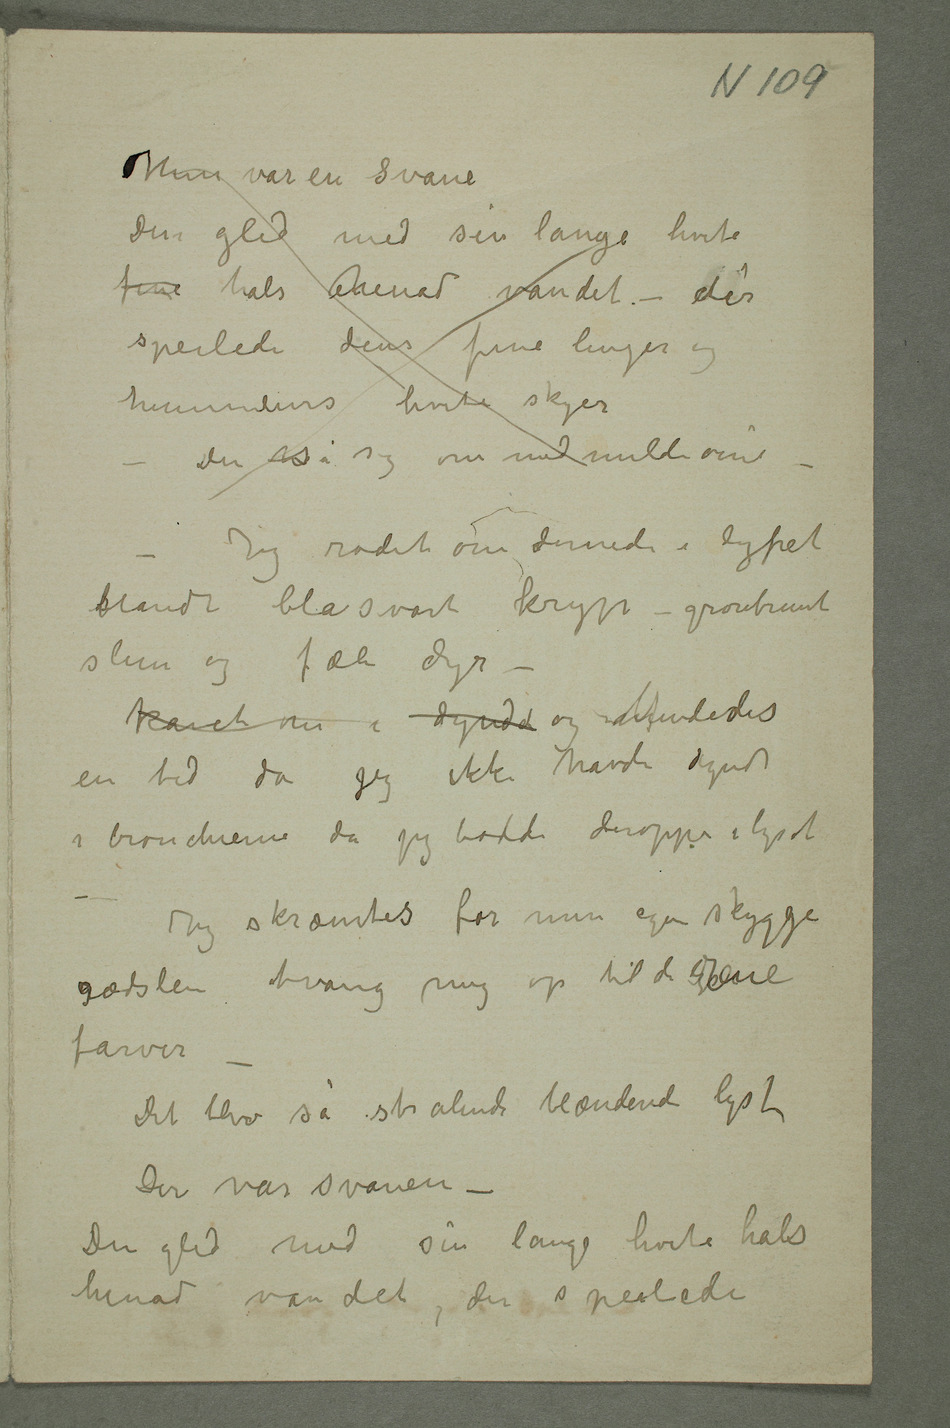 N 109
Hun var en Svane
Den gled med sin lange hvite
fine hals henad vandet. – der
speilede dens fine linjer og
himmelens hvite skyer
– Den så sig om med milde øine –
– Jeg rodet om dernede i dypet
blandt blåsvart kryp – grønbrunt
slim og fæle dyr –
Kavet om i dyndet og mindedes
en tid da jeg ikke havde dyndt
i bronchierne da jeg bodde deroppe i lyset
–
Jeg skræmtes for min egen skygge
rædslen tvang mig op til de rene
farver –
Det blev så strålende blændende lyst
Der var svanen –
Den gled med sin lange hvite hals
henad vandet, der speilede